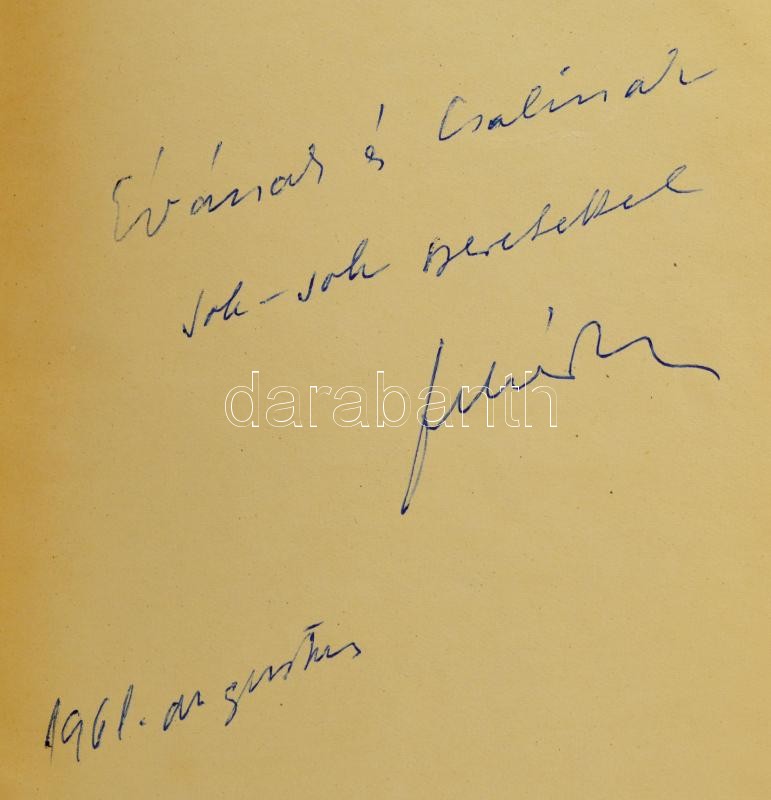 Évának és Csalinak
sok-sok szeretettel
darabanth
1961. augusztus